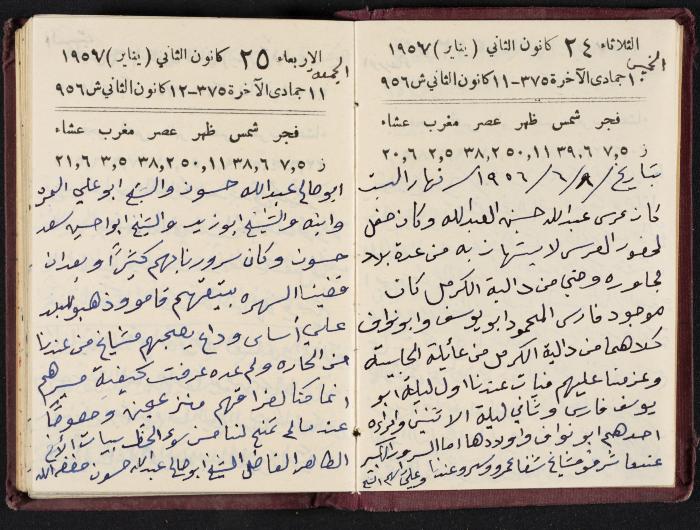 الثلاثاء ٢٤ كانون الثاني (يناير) ١٩٥٧
الخميس
١٠ جمادى الآخرة ٣٧٥-١١ كانون الثاني ش ٩٥٦
فجر شمس ظهر عصر مغرب عشاء
ز ٧,٥ ٣٩,٦ ٥٠,١١ ٣٨,٢ ٢,٥ ٢٠,٦
بتاريخ / ٨ / ٦ / ١٩٥٦ / نهار السبت
كان عرس عبدالله حسين العبدالله وكان حفل
لحضور العرس لا يستهان به من عدة بلاد
مجاوره وحتى من دالية الكرمل كان
موجود فارس المحمود ابو يوسف وابو نواف
كلاهما من دالية الكرمل من عائلة الحلبية
وعزمنا عليهم فبات عندنا اول ليلة ابو
يوسف فارس وثاني ليلة الاثنين وامراة
احدهم ابو نواف واولادها اما السرور الاكبر
عندما شرفو مشايخ شفاعمرو وسهرو عندنا وعلى رأسهم الشيخ
الاربعاء ٢٥ كانون الثاني (يناير) ١٩٥٧
الجمعة
١١ جمادى الآخرة ٣٧٥-١٢ كانون الثاني ش ٩٥٦
فجر شمس ظهر عصر مغرب عشاء
ز ٧,٥ ٣٨,٦ ٥٠,١١ ٣٨,٢ ٣,٥ ٢١,٦
ابو صالح عبدالله حسون والشيخ ابو علي
وابنه والشيخ ابو زيد والشيخ ابو حسين سعد
حسون وكان سرورنا بهم كثيراً وبعد ان
قضينا السهره ببيتهم قامو وذهبو للبلد
على أساس وداع يصحبهم مشايخ من عندنا
من الحاره ولم عدة عرفت كيفية مسيرهم
انما كنا لفراقهم منزعجين وخصوصاً
عند ما لم تمنح لنا من سوء الحظ ببيات الأخ
الطاهر الفاضل الشيخ ابو صالح عبدالله حسون حفظه الله